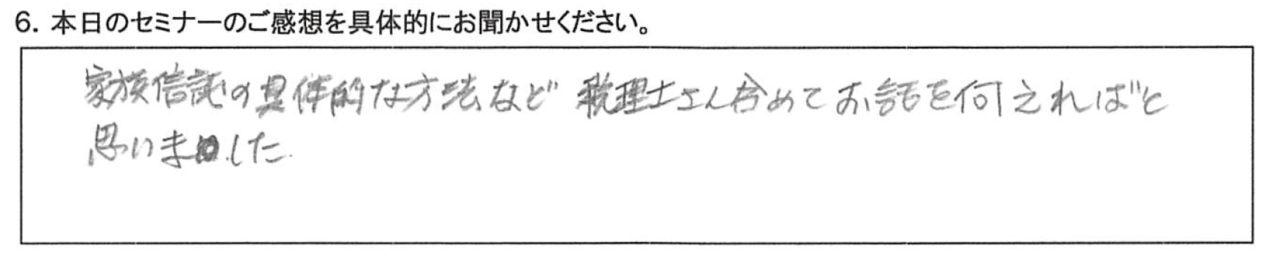 6. 本日のセミナーのご感想を具体的にお聞かせください。
家族信託の具体的な方法など 税理士さん含めてお話を伺えればと
思いました